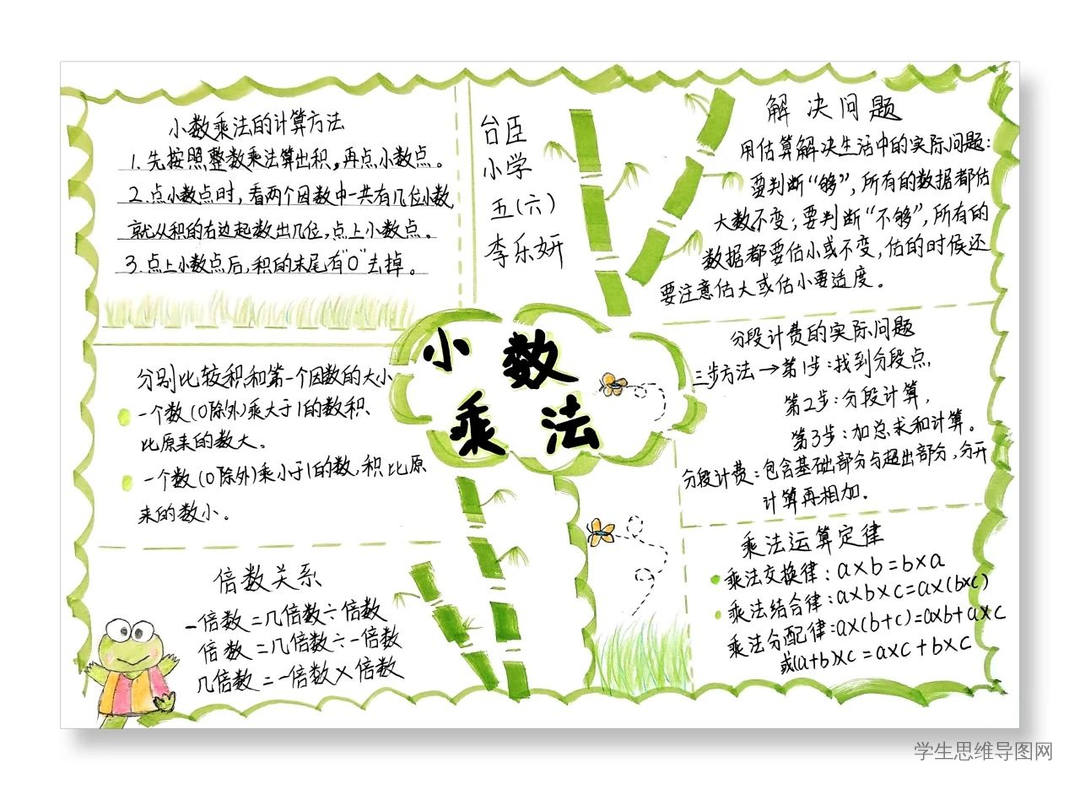 小数乘法的计算方法
1.先按照整数乘法算出积,再点小数点。
2.点小数点时,看两个因数中一共有几位小数,
就从积的右边起数出几位,点上小数点。
3.点上小数点后,积的末尾有"0"去掉。
台臣
小学
五(六)
李乐妍
解决问题
用估算解决生活中的实际问题:
要判断“够”,所有的数据都估
大数不变;要判断“不够”,所有的
数据都要估小或不变,估的时候还
要注意估大或估小要适度。
小数
乘法
分别比较积和第一个因数的大小
一个数(0除外)乘大于1的数积、
比原来的数大。
一个数(0除外)乘小于1的数,积比原
来的数小。
分段计费的实际问题
三步方法→第1步:找到分段点,
第2步:分段计算,
第3步:加总求和计算。
分段计费:包含基础部分与超出部分,分开
计算再相加.
倍数关系
一倍数=几倍数÷倍数
倍数=几倍数÷一倍数
几倍数=一倍数×倍数
乘法运算定律
乘法交换律:a×b=b×a
乘法结合律:a×b×c=a×(b×c)
乘法分配律:a×(b+c)=a×b+a×c
或(a+b)×c=a×c+b×c
学生思维导图网